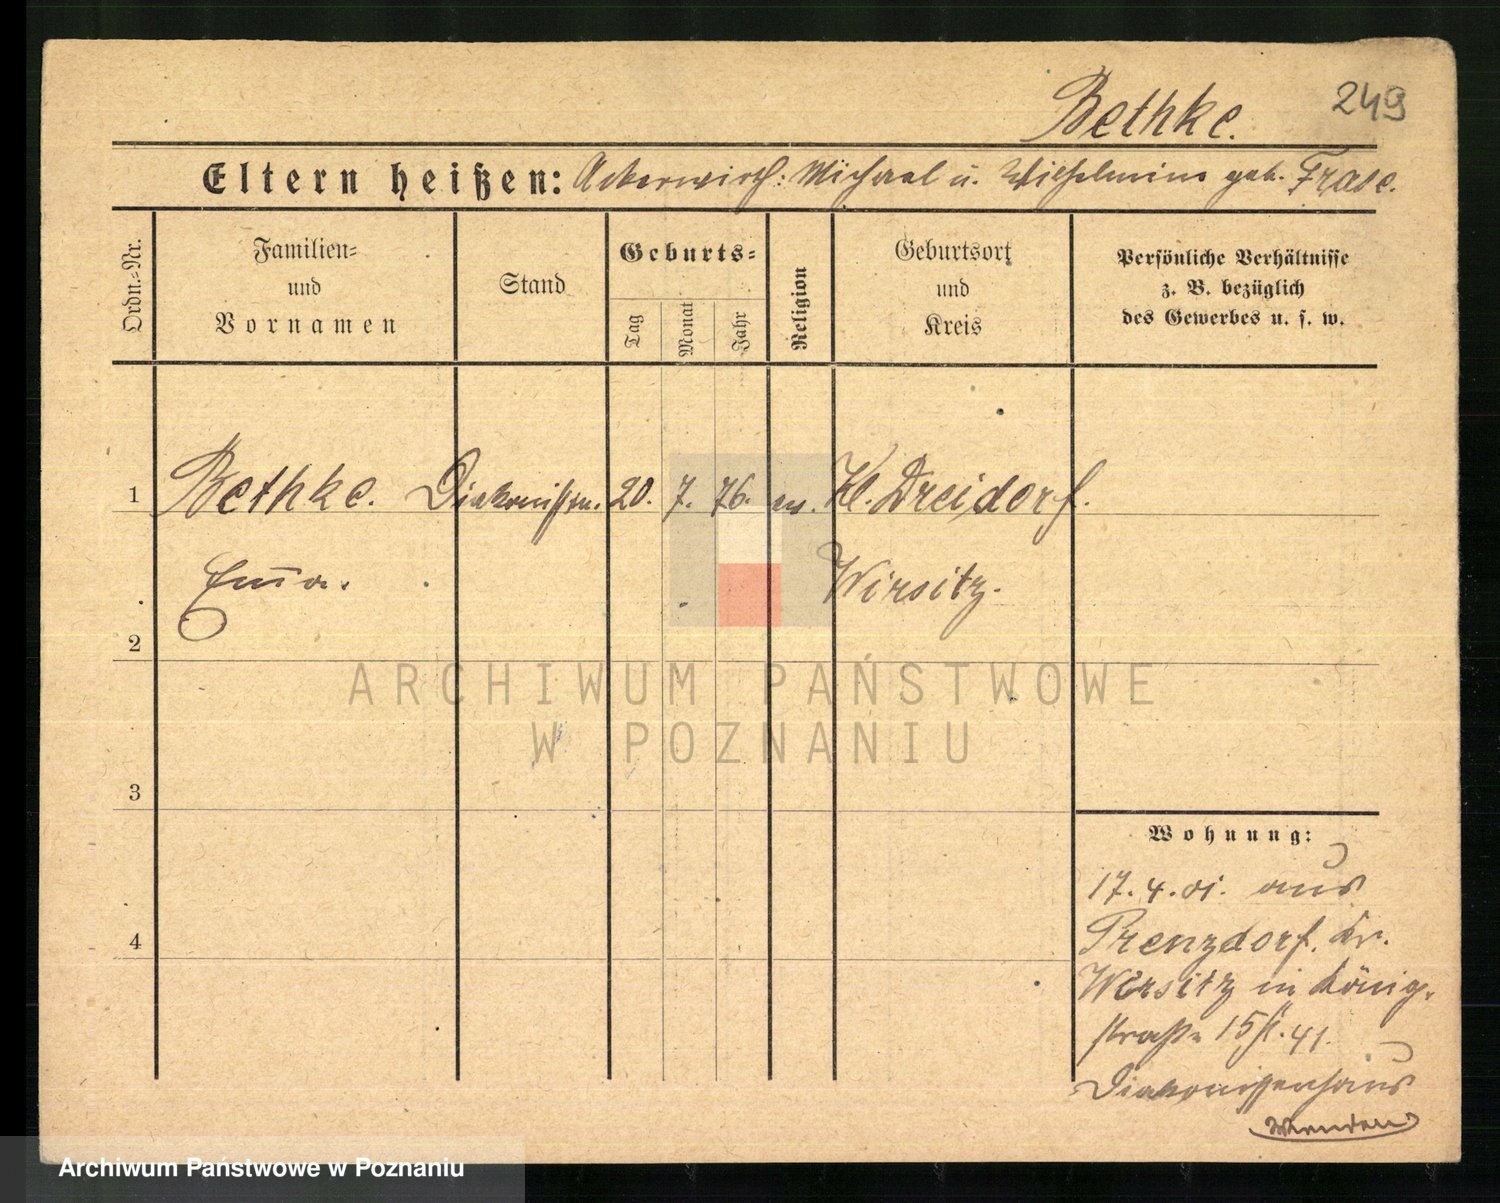 249
Bethke.
Eltern heißen: Ackerwirth: Michael u. Wilhelmine geb. Frase.
Ordn.-Nr.
Familien-
und
Vornamen
Stand
Geburts-
Tag
Monat
Jahr
Religion
Geburtsort
und
Kreis
Persönliche Verhältnisse
z. B. bezüglich
des Gewerbes u. s. w.
1 Bethke. Diakonissin. 20. 7. 76. ev. Kl. Dreidorf.
Em̅a. Wirsitz.
2
3
4
Wohnung:
17.4.01. aus
Prenzdorf. Kr.
Wirsitz in König-
straße 15/ 41.
Diakonissenhaus
Wenden
ARCHIWUM PAŃSTWOWE
W POZNANIU
Archiwum Państwowe w Poznaniu